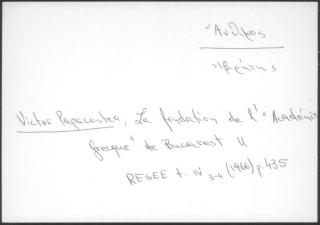 Ἄνθιμος
Ἰβηρίτης
Victor Papacostea, La fondation de l' "Académie
grecque" de Bucarest II
RESEE t. IV 3-4 (1966) p. 435